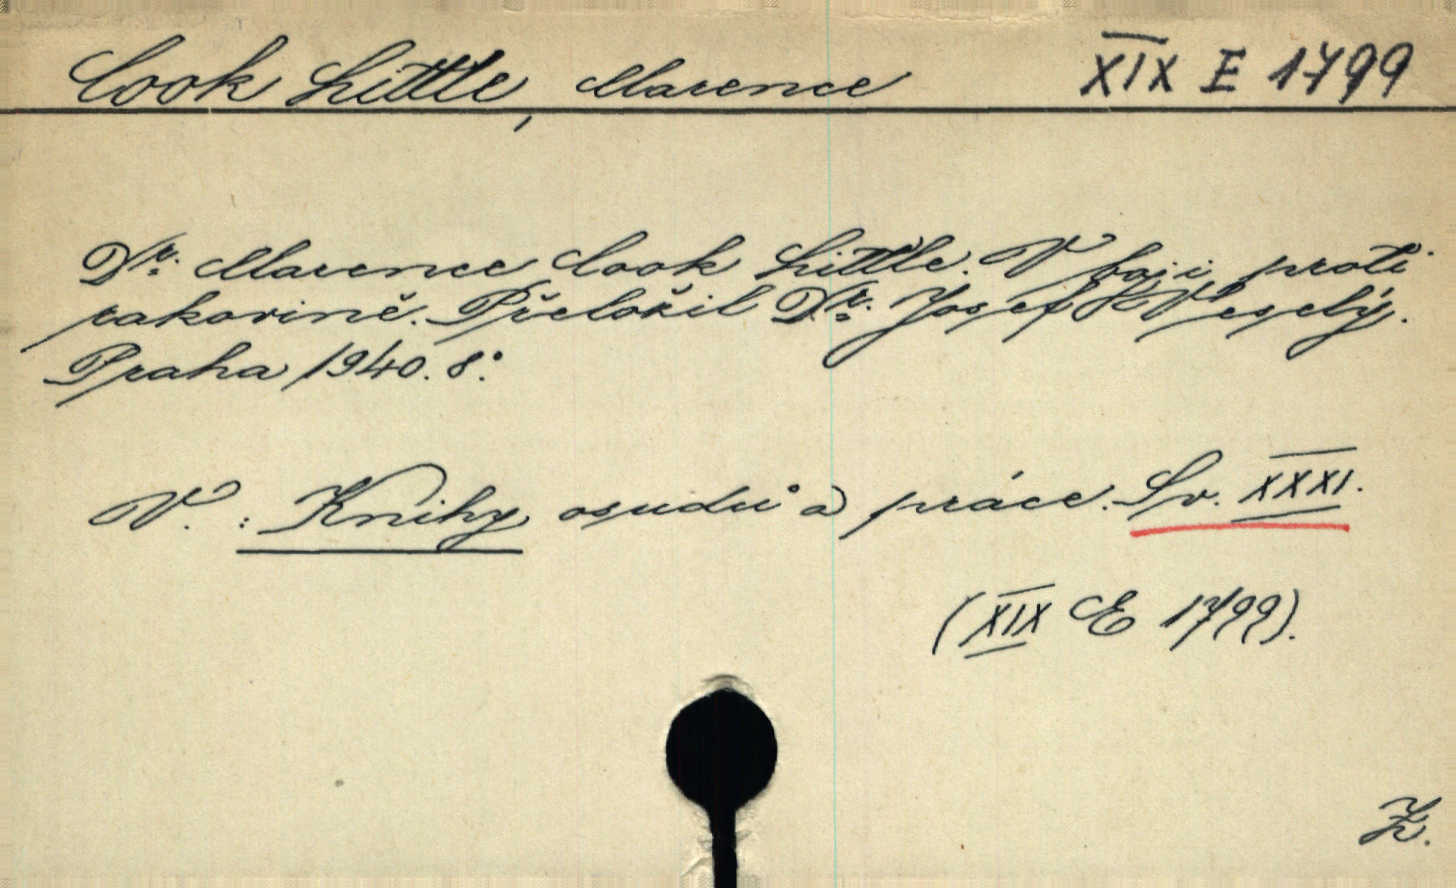 Cook Little, Clarence XIX E 1799
Dr. Clarence Cook Little. V boji proti
rakovině. Přeložil Dr. Josef K Veselý.
Praha 1940. 8°.
V. : Knihy osudů a práce. Sv. XXXI.
(XIX E 1799).
Z.